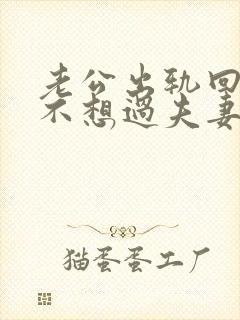 老公出轨回
不想过夫妻
猫蛋蛋工厂